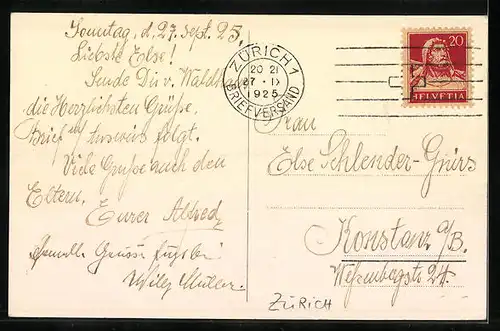 Sonntag, d. 27. Sept. 25,
Liebste Else!
Sende Dir v. Waldhaus
die Herzlichsten Grüße.
Brief folgt.
Viele Grüße auch den
Eltern.
Eurer Alfred
Grüsse
Willy Müller.
ZÜRICH 1
20 21
27 · IX
1925
BRIEFVERSAND
20
HELVETIA
Frau
Else Schlender-Gürs
Konstanz a/B.
Wessenbergstr. 24.
ZÜRICH